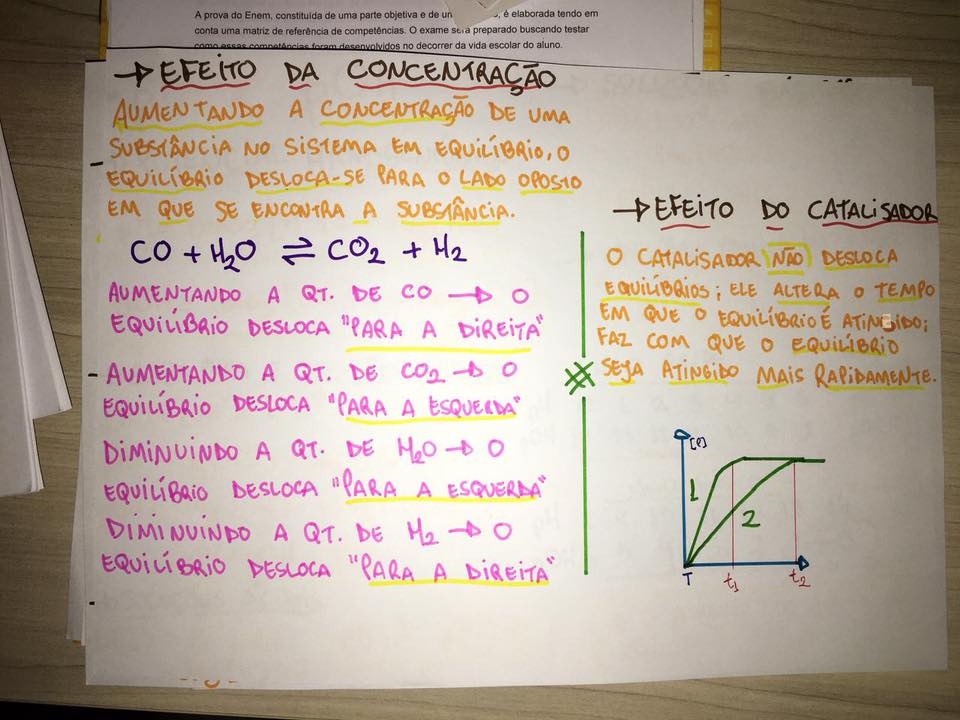 A prova do Enem, constituída de uma parte objetiva e de um , é elaborada tendo em
conta uma matriz de referência de competências. O exame será preparado buscando testar
como essas competências foram desenvolvidos no decorrer da vida escolar do aluno.
→ EFEITO DA CONCENTRAÇÃO
AUMENTANDO A CONCENTRAÇÃO DE UMA
SUBSTÂNCIA NO SISTEMA EM EQUILÍBRIO, O
EQUILÍBRIO DESLOCA-SE PARA O LADO OPOSTO
EM QUE SE ENCONTRA A SUBSTÂNCIA.
CO + H2O ⇌ CO2 + H2
AUMENTANDO A QT. DE CO → O
EQUILÍBRIO DESLOCA "PARA A DIREITA"
AUMENTANDO A QT. DE CO2 → O
EQUILÍBRIO DESLOCA "PARA A ESQUERDA"
DIMINUINDO A QT. DE H2O → O
EQUILÍBRIO DESLOCA "PARA A ESQUERDA"
DIMINUINDO A QT. DE H2 → O
EQUILÍBRIO DESLOCA "PARA A DIREITA"
→ EFEITO DO CATALISADOR
O CATALISADOR NÃO DESLOCA
EQUILÍBRIOS; ELE ALTERA O TEMPO
EM QUE O EQUILÍBRIO É ATINGIDO;
FAZ COM QUE O EQUILÍBRIO
SEJA ATINGIDO MAIS RAPIDAMENTE.
[P]
1
2
T
t1
t2